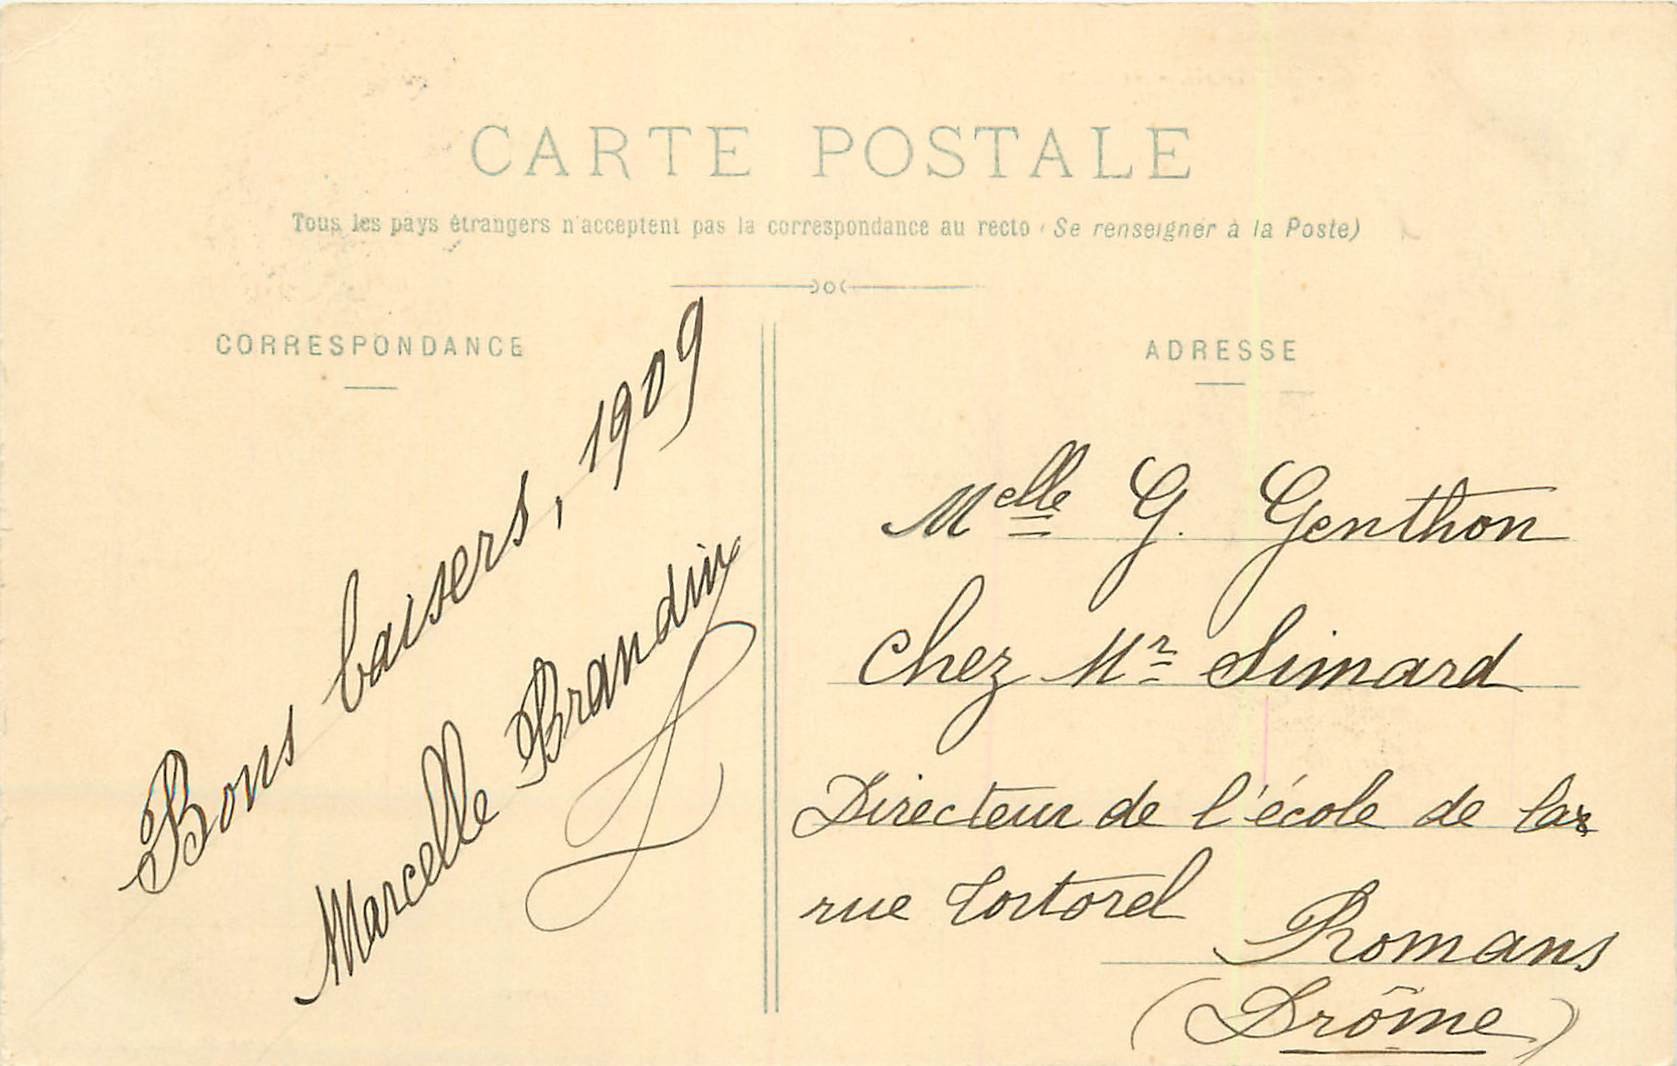 CARTE POSTALE
Tous les pays étrangers n'acceptent pas la correspondance au recto (Se renseigner à la Poste)
CORRESPONDANCE
Bons baisers, 1909
Marcelle Brandin
ADRESSE
Melle G. Genthon
Chez Mr Simard
Directeur de l'école de la
rue
Romans
(Drôme)